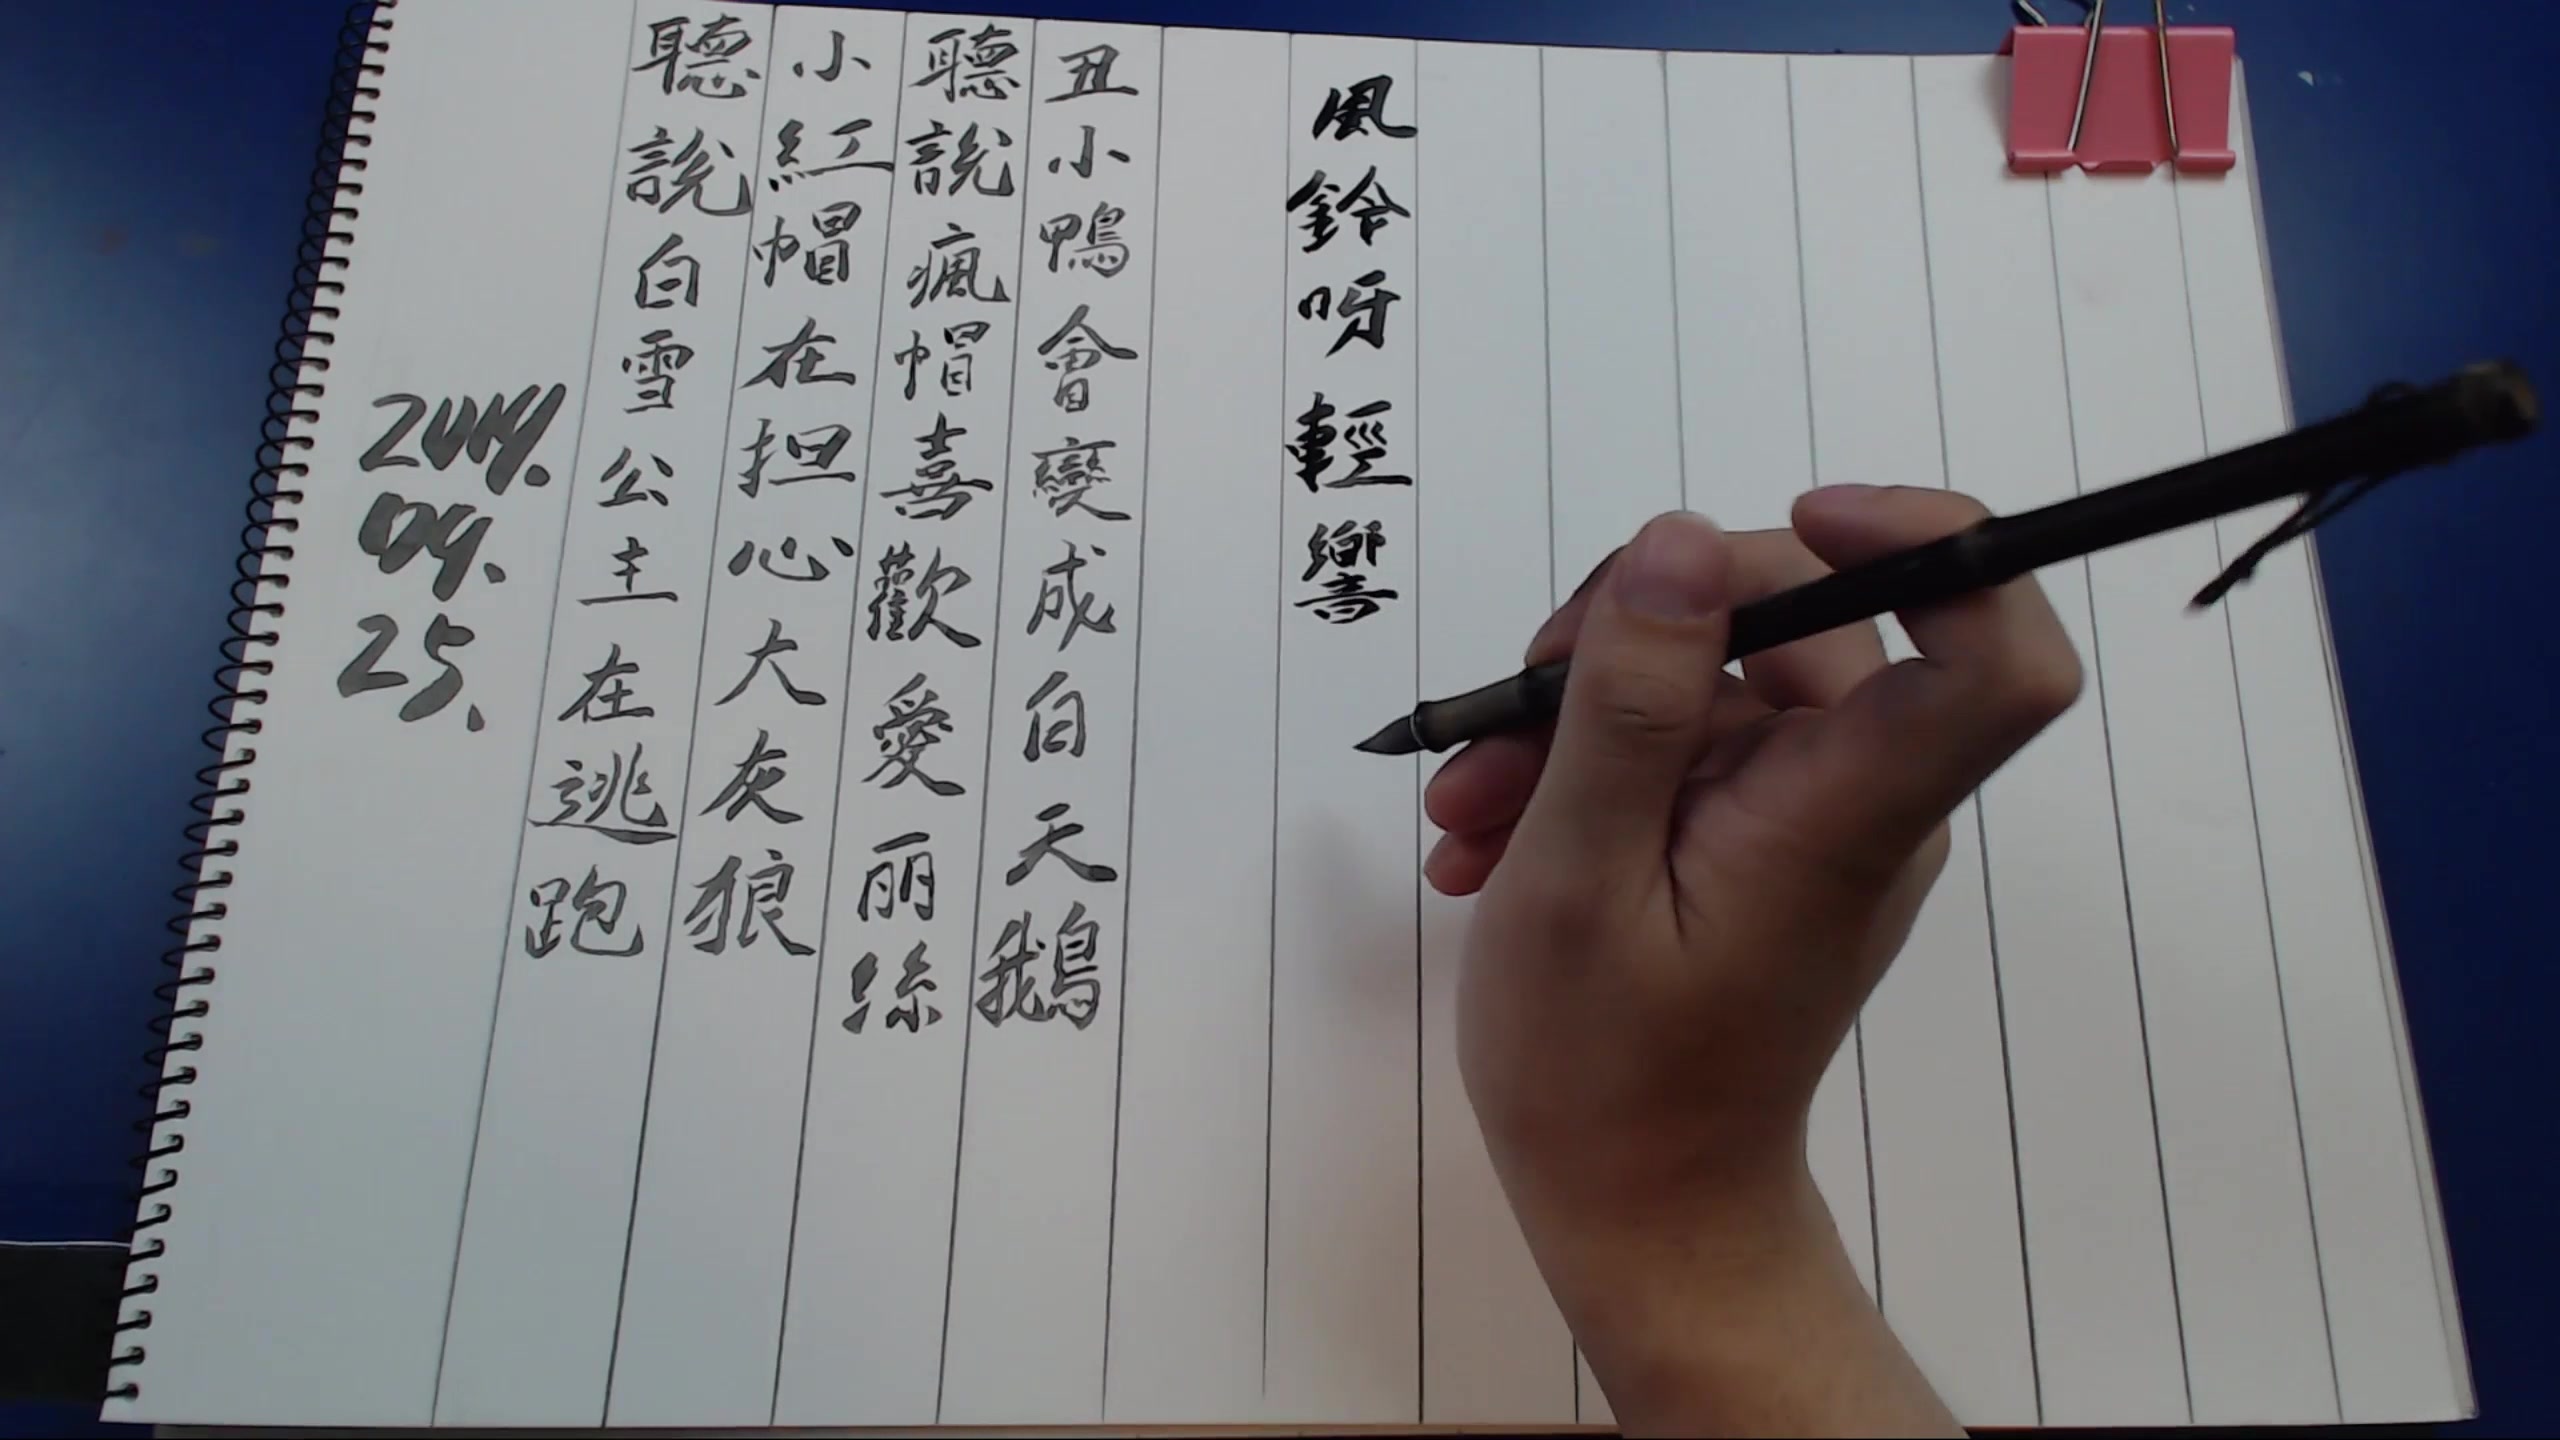 2019.
09.
25.
聽說白雪公主在逃跑
小紅帽在担心大灰狼
聽說瘋帽喜歡愛丽絲
丑小鴨會變成白天鵝
風鈴呀輕響